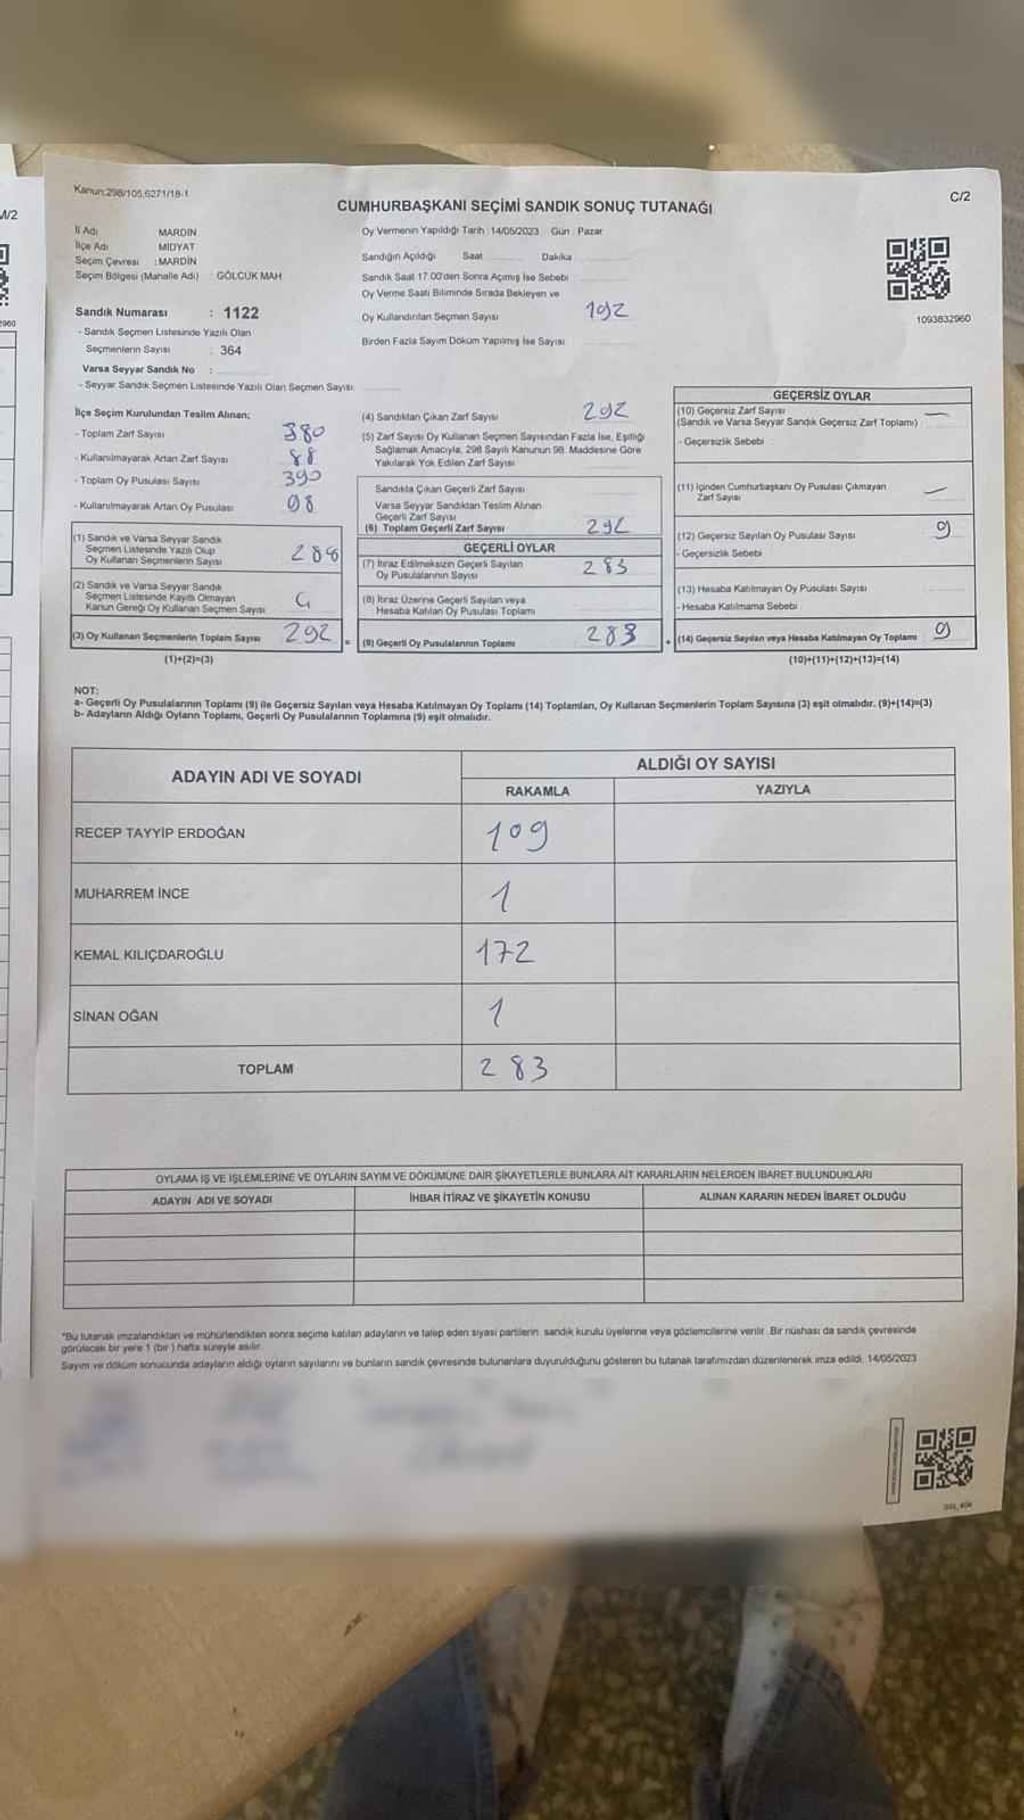 M/2
Kanun:298/105,6271/18-1
C/2
CUMHURBAŞKANI SEÇİMİ SANDIK SONUÇ TUTANAĞI
İl Adı MARDİN
İlçe Adı MİDYAT
Seçim Çevresi : MARDİN
Seçim Bölgesi (Mahalle Adı) : GÖLCÜK MAH
Sandık Numarası : 1122
- Sandık Seçmen Listesinde Yazılı Olan
Seçmenlerin Sayısı : 364
Varsa Seyyar Sandık No :
- Seyyar Sandık Seçmen Listesinde Yazılı Olan Seçmen Sayısı
Oy Vermenin Yapıldığı Tarih : 14/05/2023 Gün : Pazar
Sandığın Açıldığı Saat Dakika
Sandık Saat 17.00'den Sonra Açımış İse Sebebi
Oy Verme Saati Bitiminde Sırada Bekleyen ve
Oy Kullandırılan Seçmen Sayısı 192
Birden Fazla Sayım Döküm Yapılmış İse Sayısı
1093832960
İlçe Seçim Kurulundan Teslim Alınan;
- Toplam Zarf Sayısı 380
- Kullanılmayarak Artan Zarf Sayısı 88
- Toplam Oy Pusulası Sayısı 390
- Kullanılmayarak Artan Oy Pusulası 98
(1) Sandık ve Varsa Seyyar Sandık
Seçmen Listesinde Yazılı Olup
Oy Kullanan Seçmenlerin Sayısı 288
(2) Sandık ve Varsa Seyyar Sandık
Seçmen Listesinde Kayıtlı Olmayan
Kanun Gereği Oy Kullanan Seçmen Sayısı 4
(3) Oy Kullanan Seçmenlerin Toplam Sayısı 292 =
(1)+(2)=(3)
(4) Sandıktan Çıkan Zarf Sayısı 292
(5) Zarf Sayısı Oy Kullanan Seçmen Sayısından Fazla İse, Eşitliği
Sağlamak Amacıyla, 298 Sayılı Kanunun 98. Maddesine Göre
Yakılarak Yok Edilen Zarf Sayısı
Sandıkta Çıkan Geçerli Zarf Sayısı
Varsa Seyyar Sandıktan Teslim Alınan
Geçerli Zarf Sayısı
(6) Toplam Geçerli Zarf Sayısı 292
GEÇERLİ OYLAR
(7) İtiraz Edilmeksizin Geçerli Sayılan
Oy Pusulalarının Sayısı 283
(8) İtiraz Üzerine Geçerli Sayılan veya
Hesaba Katılan Oy Pusulası Toplamı
(9) Geçerli Oy Pusulalarının Toplamı 283 +
GEÇERSİZ OYLAR
(10) Geçersiz Zarf Sayısı —
(Sandık ve Varsa Seyyar Sandık Geçersiz Zarf Toplamı)
- Geçersizlik Sebebi
(11) İçinden Cumhurbaşkanı Oy Pusulası Çıkmayan
Zarf Sayısı —
(12) Geçersiz Sayılan Oy Pusulası Sayısı 9
- Geçersizlik Sebebi
(13) Hesaba Katılmayan Oy Pusulası Sayısı
- Hesaba Katılmama Sebebi
(14) Geçersiz Sayılan veya Hesaba Katılmayan Oy Toplamı 9
(10)+(11)+(12)+(13)=(14)
NOT:
a- Geçerli Oy Pusulalarının Toplamı (9) ile Geçersiz Sayılan veya Hesaba Katılmayan Oy Toplamı (14) Toplamları, Oy Kullanan Seçmenlerin Toplam Sayısına (3) eşit olmalıdır. (9)+(14)=(3)
b- Adayların Aldığı Oyların Toplamı, Geçerli Oy Pusulalarının Toplamına (9) eşit olmalıdır.
ADAYIN ADI VE SOYADI
ALDIĞI OY SAYISI
RAKAMLA YAZIYLA
RECEP TAYYİP ERDOĞAN 109
MUHARREM İNCE 1
KEMAL KILIÇDAROĞLU 172
SİNAN OĞAN 1
TOPLAM 283
OYLAMA İŞ VE İŞLEMLERİNE VE OYLARIN SAYIM VE DÖKÜMÜNE DAİR ŞİKAYETLERLE BUNLARA AİT KARARLARIN NELERDEN İBARET BULUNDUKLARI
ADAYIN ADI VE SOYADI İHBAR İTİRAZ VE ŞİKAYETİN KONUSU ALINAN KARARIN NEDEN İBARET OLDUĞU
*Bu tutanak imzalandıktan ve mühürlendikten sonra seçime katılan adayların ve talep eden siyasi partilerin sandık kurulu üyelerine veya gözlemcilerine verilir. Bir nüshası da sandık çevresinde
görülecek bir yere 1 (bir) hafta süreyle asılır.
Sayım ve döküm sonucunda adayların aldığı oyların sayılarını ve bunların sandık çevresinde bulunanlara duyurulduğunu gösteren bu tutanak tarafımızdan düzenlenerek imza edildi. 14/05/2023